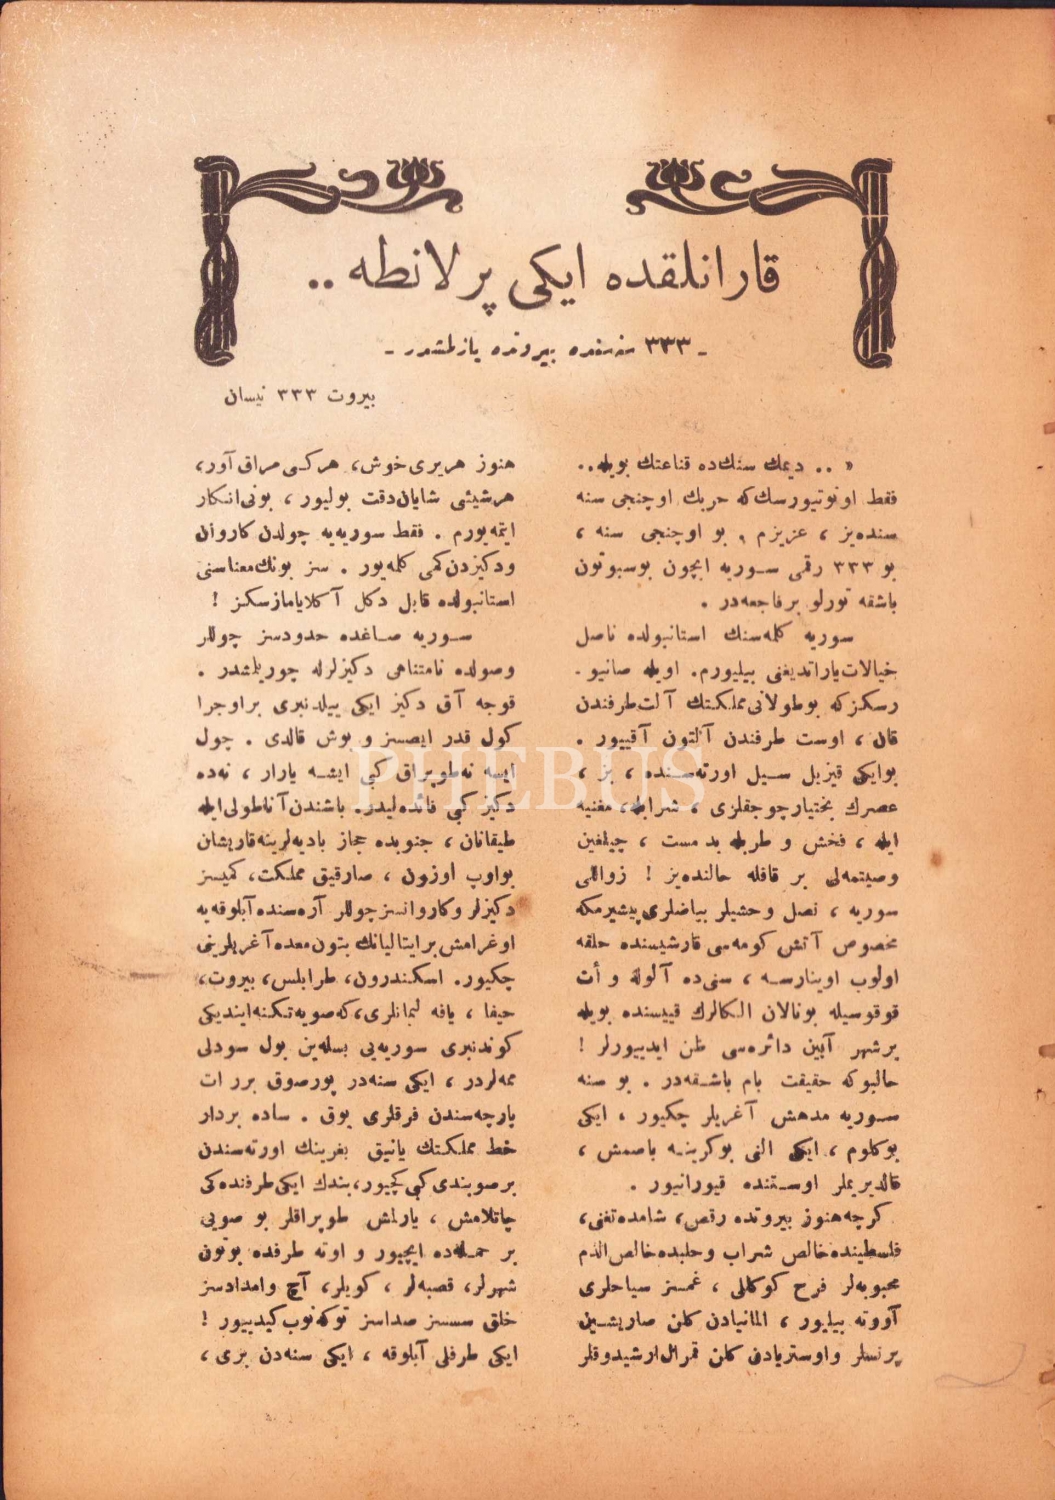 قارانلقده ایکی پرلانطه ..
ـ ٣٣٣ سنه‌سنده بیروتده یازلمشدر ـ
بیروت ٣٣٣ نیسان
« .. دیمك سنك‌ده قناعتك بویله ..
فقط اونوتیورسك‌که حربك اوچنجی سنه
سنده‌یز ، عزیزم . بو اوچنجی سنه ،
بو ٣٣٣ رقمی سوریه ایچون بوسبوتون
باشقه تورلو برفاجعه‌در .
سوریه کلمه‌سنك استانبولده ناصل
خیالات‌یاراتدیغنی بیلیورم. اویله صانیو ـ
رسکزکه بوطولانی‌مملکتك آلت‌طرفندن
قان ، اوست طرفندن آلتون آقییور .
بوایکی قیزیل سیل اورته‌سنده ، بز ،
عصرك بختیارچوجقلری ، شرابله، مغنیه
ایله ، فخش و طربله بدمست ، چیلغین
وصیتمه‌لی بر قافله حالنده‌یز ! زواللی
سوریه ، نصل وحشیلر بیاضلری‌پیشیرمکه
مخصوص آتش کومه‌سی قارشیسنده حلقه
اولوب اوینارسه ، سنی‌ده آلوله و أت
قوقوسیله بونالان الکالرك قپیسنده بویله
برشهر آیین دائره‌سی ظن ایدییورلر !
حالبوکه حقیقت بام باشقه‌در . بو سنه
سوریه مدهش آغریلر چکیور ، ایکی
بوکلوم ، ایکی النی بوکرینه باصمش ،
قالدیریملر اوستنده قیورانیور .
کرچه‌هنوز بیروتده رقص، شامده‌تغنی،
فلسطینده‌خالص شراب وحلبده‌خالص‌الدم
محبوبه‌لر فرح کوکللی ، غمسز سیاحلری
آووته بیلیور ، المانیادن کلن صاریشین
پرنسلر واوستریادن کلن قمرال‌ارشیدوقلر
هنوز هریری‌خوش، هرکسی‌مراق‌آور،
هرشیئی شایان‌دقت بولیور ، بونی‌انکار
ایتمه‌یورم . فقط سوریه‌یه چولدن کاروان
ودکیزدن‌کمی کلمه‌یور . سز بونك‌معناسنی
استانبولده قابل دکل آکلایامازسکز !
سوریه صاغده حدودسز چوللر
وصولده نامتناهی دکیزلرله چوریلمشدر .
قوجه آق دکیز ایکی ییلدنبری براوجرا
کول قدر ایصسز و بوش قالدی . چول
ایسه نه‌طوپراق کبی ایشه یارار ، نه‌ده
دکیز کبی فائده‌لیدر. باشندن‌آناطولی‌ایله
طیقانان ، جنوبده حجاز بادیه‌لرینه‌قاریشان
بواوپ اوزون ، صارقیق مملکت، کمیسز
دکیزلر وکاروانسزچوللر آره‌سنده‌آبلوقه‌یه
اوغرامش‌برایتالیانك بتون‌معده‌آغریلرینی
چکیور. اسکندرون، طرابلس، بیروت،
حیفا ، یافه لیمانلری،که‌صویه‌تکنه‌ایندیکی
کوندنبری سوریه‌یی بسله‌ین بول سودلی
ممه‌لردر ، ایکی سنه‌در پورصوق برر ات
پارچه‌سندن فرقلری یوق . ساده بردار
خط مملکتك یانیق بغرینك اورته‌سندن
برصوبندی کبی‌کچیور،بندك ایکی‌طرفنده‌کی
چاتلامش ، یارلمش طوپراقلر بو صویی
بر حمله‌ده ایچیور و اوته طرفده بوتون
شهرلر، قصبه‌لر ، کویلر، آچ وامدادسز
خلق سسسز صداسز توکه‌نوب‌کیدییور !
ایکی طرفلی آبلوقه ، ایکی سنه‌دن بری ،
PHEBUS